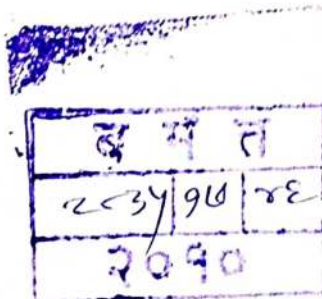 ब म त
२८३५ १७ ४६
२०१०